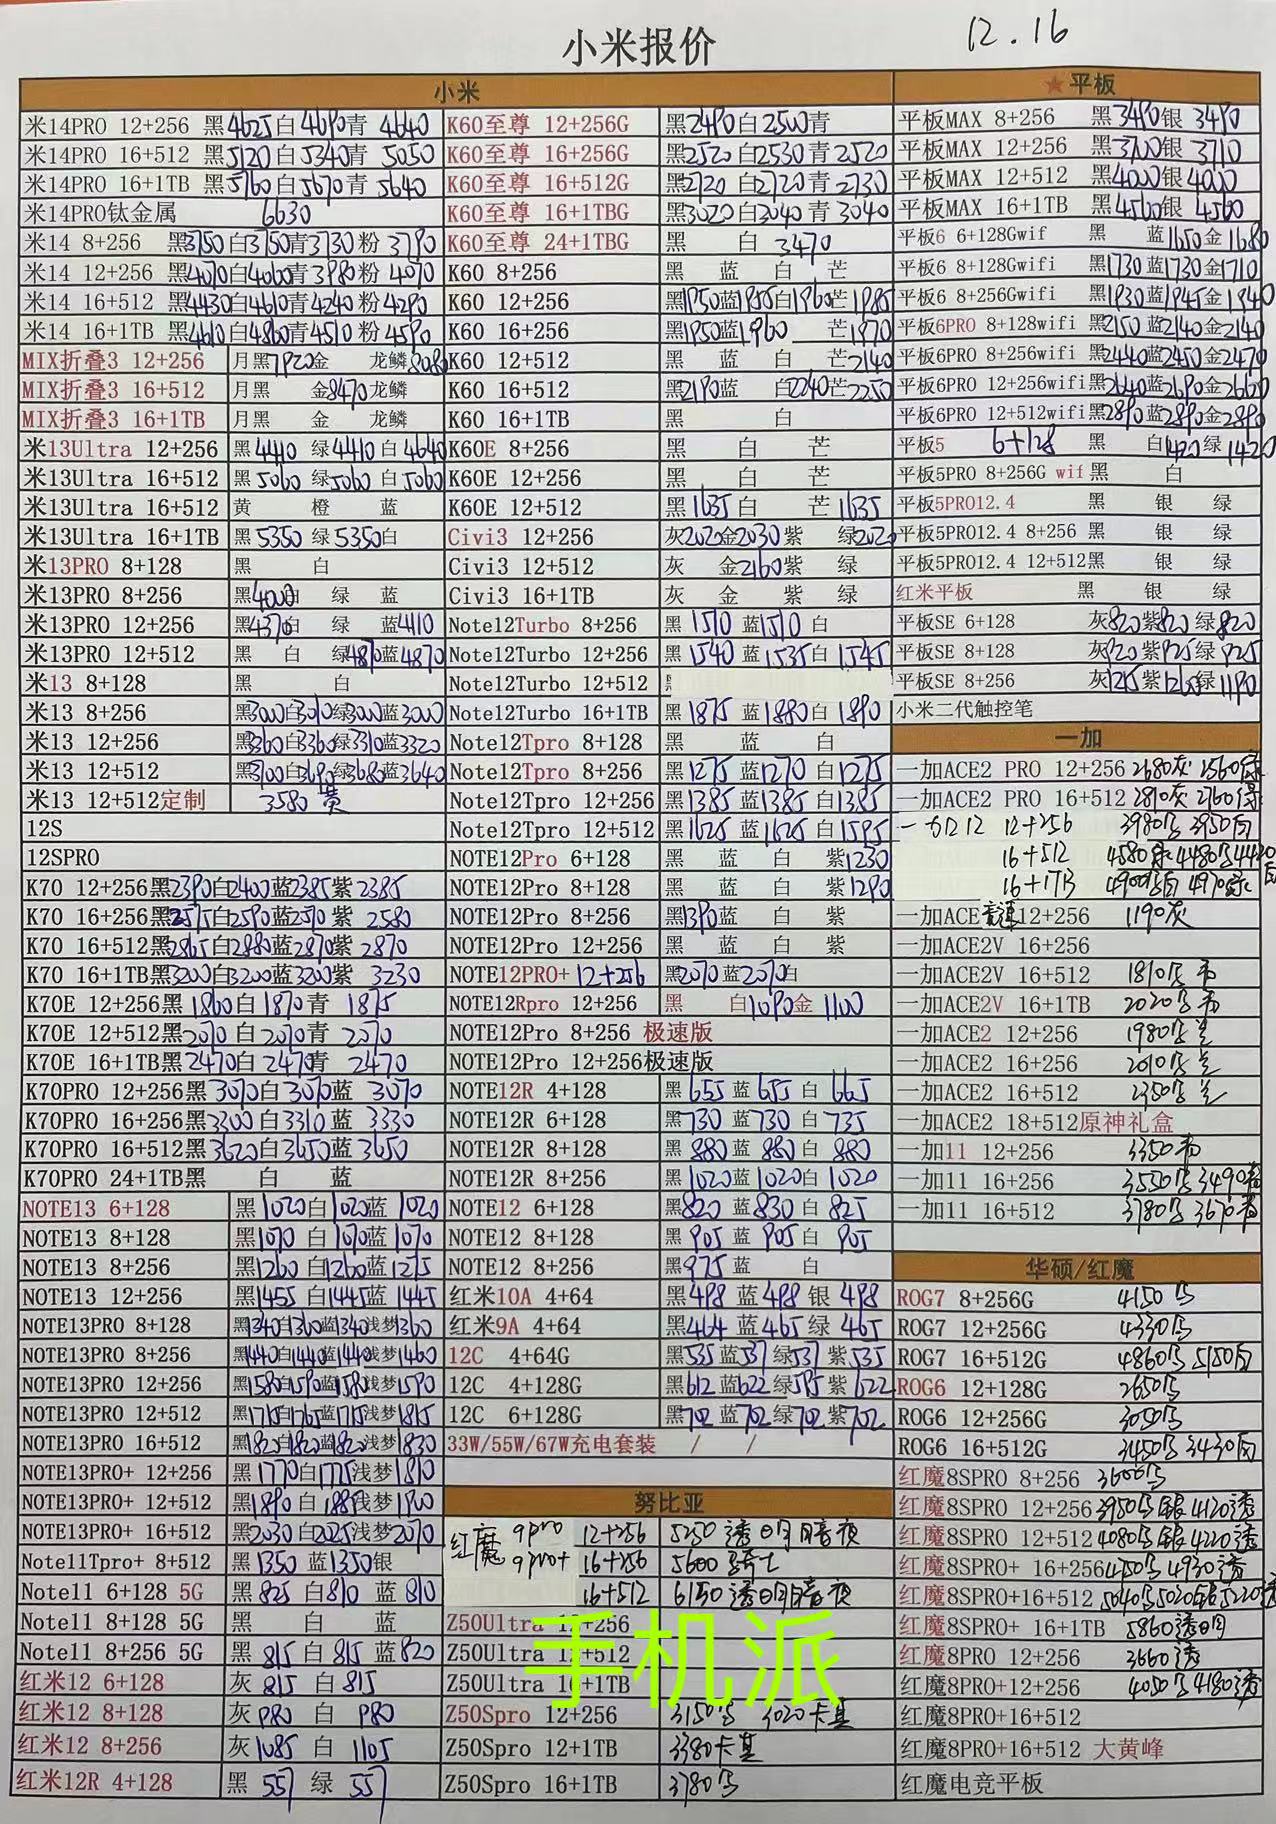 小米报价
12.16
小米
米14PRO 12+256 黑4625白4690青 4640
米14PRO 16+512 黑5120白5340青 5050
米14PRO 16+1TB 黑5760白5670青 5640
米14PRO钛金属 6630
米14 8+256 黑3750白3750青3730粉 3790
米14 12+256 黑4070白4060青3980粉 4070
米14 16+512 黑4430白4610青4240粉4290
米14 16+1TB 黑4610白4860青4510粉4590
MIX折叠3 12+256 月黑7920金 龙鳞8080
MIX折叠3 16+512 月黑 金8470龙鳞
MIX折叠3 16+1TB 月黑 金 龙鳞
米13Ultra 12+256 黑4410 绿4410白4640
米13Ultra 16+512 黑5060绿5060白5060
米13Ultra 16+512 黄 橙 蓝
米13Ultra 16+1TB 黑5350绿5350白
米13PRO 8+128 黑 白
米13PRO 8+256 黑4000白 绿 蓝
米13PRO 12+256 黑4370白 绿 蓝4410
米13PRO 12+512 黑 白 绿4870蓝4870
米13 8+128 黑 白
米13 8+256 黑3000白3010绿3000蓝3000
米13 12+256 黑3360白3360绿3310蓝3320
米13 12+512 黑3700白3690绿3680蓝3640
米13 12+512定制 3580 黄
12S
12SPRO
K70 12+256黑2390白2400蓝2385紫2385
K70 16+256黑2575白2590蓝2570紫 2580
K70 16+512黑2865白2880蓝2870紫 2870
K70 16+1TB黑3200白3200蓝3200紫 3230
K70E 12+256黑 1860白1870青 1875
K70E 12+512黑2070白2070青 2070
K70E 16+1TB黑2470白2470青 2470
K70PRO 12+256黑 3070白3070蓝 3070
K70PRO 16+256黑3300白3310蓝 3330
K70PRO 16+512黑3620白3650蓝3650
K70PRO 24+1TB黑 白 蓝
NOTE13 6+128 黑1020白1020蓝 1020
NOTE13 8+128 黑1070 白1070蓝1070
NOTE13 8+256 黑1260白1260蓝1275
NOTE13 12+256 黑1455 白1445蓝 1445
NOTE13PRO 8+128 黑1340白1360蓝1340浅梦1360
NOTE13PRO 8+256 黑1440白1440蓝1440浅梦1460
NOTE13PRO 12+256 黑1580白1590蓝1580浅梦1590
NOTE13PRO 12+512 黑1715白1765蓝1715浅梦1815
NOTE13PRO 16+512 黑1820白1820蓝1820浅梦1830
NOTE13PRO+ 12+256 黑1770白1775浅梦1810
NOTE13PRO+ 12+512 黑1890白 1885浅梦1900
NOTE13PRO+ 16+512 黑2030白2025浅梦2070
Note11Tpro+ 8+512 黑1350 蓝1350银
Note11 6+128 5G 黑825 白810 蓝810
Note11 8+128 5G 黑 白 蓝
Note11 8+256 5G 黑815 白815 蓝820
红米12 6+128 灰815 白815
红米12 8+128 灰980 白 980
红米12 8+256 灰1085 白 1105
红米12R 4+128 黑 557 绿 557
K60至尊 12+256G 黑2490白2500青
K60至尊 16+256G 黑2520白2530青2520
K60至尊 16+512G 黑2720白2720青2730
K60至尊 16+1TBG 黑3020白3040青3040
K60至尊 24+1TBG 黑 白 3470
K60 8+256 黑 蓝 白 芒
K60 12+256 黑1950蓝1955白1960芒1985
K60 16+256 黑1950蓝1960 芒1970
K60 12+512 黑 蓝 白 芒2140
K60 16+512 黑2190蓝 白2240芒2250
K60 16+1TB 黑 白
K60E 8+256 黑 白 芒
K60E 12+256 黑 白 芒
K60E 12+512 黑1635白 芒1635
Civi3 12+256 灰2020金2030紫 绿2020
Civi3 12+512 灰 金2160紫 绿
Civi3 16+1TB 灰 金 紫 绿
Note12Turbo 8+256 黑 1510 蓝1510 白
Note12Turbo 12+256 黑 1540 蓝1535白1545
Note12Turbo 12+512
Note12Turbo 16+1TB 黑 1875 蓝1880白1890
Note12Tpro 8+128 黑 蓝 白
Note12Tpro 8+256 黑1275蓝1270白1275
Note12Tpro 12+256 黑1385蓝1385白1385
Note12Tpro 12+512 黑1625蓝1625白1595
NOTE12Pro 6+128 黑 蓝 白 紫1230
NOTE12Pro 8+128 黑 蓝 白 紫1290
NOTE12Pro 8+256 黑1390蓝 白 紫
NOTE12Pro 12+256 黑 蓝 白 紫
NOTE12PRO+ 12+256 黑2070蓝2070白
NOTE12Rpro 12+256 黑 白1090金1100
NOTE12Pro 8+256 极速版
NOTE12Pro 12+256极速版
NOTE12R 4+128 黑655蓝655 白 665
NOTE12R 6+128 黑730蓝730 白 735
NOTE12R 8+128 黑880蓝880白 880
NOTE12R 8+256 黑1020蓝1020白1020
NOTE12 6+128 黑820 蓝830 白 825
NOTE12 8+128 黑905 蓝905 白905
NOTE12 8+256 黑975蓝 白
红米10A 4+64 黑498 蓝498银 498
红米9A 4+64 黑464 蓝465绿 465
12C 4+64G 黑535蓝537绿537紫535
12C 4+128G 黑612蓝622绿595紫622
12C 6+128G 黑702蓝702绿702紫702
33W/55W/67W充电套装 / /
努比亚
红魔 9pro 12+256 5250透明暗夜
9pro+ 16+256 5600骑士
16+512 6150透明暗夜
Z50Ultra 12+256
Z50Ultra 12+512
Z50Ultra 16+1TB
Z50Spro 12+256 3150 3020卡其
Z50Spro 12+1TB 3380卡其
Z50Spro 16+1TB 3780
手机派
★平板
平板MAX 8+256 黑3490银 3490
平板MAX 12+256 黑3700银 3710
平板MAX 12+512 黑4000银4000
平板MAX 16+1TB 黑4560银4560
平板6 6+128Gwif 黑 蓝1650金1680
平板6 8+128Gwifi 黑1730蓝1730金1710
平板6 8+256Gwifi 黑1930蓝1945金1940
平板6PRO 8+128wifi 黑2150蓝2140金2140
平板6PRO 8+256wifi 黑2440蓝2450金2470
平板6PRO 12+256wifi黑2640蓝2690金2660
平板6PRO 12+512wifi黑2890蓝2890金2890
平板5 6+128 黑 白1420绿1420
平板5PRO 8+256G wif黑 白
平板5PRO12.4 黑 银 绿
平板5PRO12.4 8+256 黑 银 绿
平板5PRO12.4 12+512黑 银 绿
红米平板 黑 银 绿
平板SE 6+128 灰820紫820绿820
平板SE 8+128 灰920紫925绿925
平板SE 8+256 灰1215紫1205绿1190
小米二代触控笔
一加
一加ACE2 PRO 12+256 2680灰 2560绿
一加ACE2 PRO 16+512 2810灰 2760绿
一加12 12+256 3980 3950白
16+512 4580绿4480 4420白
16+1TB 4900 白 4970绿
一加ACE竞速12+256 1190灰
一加ACE2V 16+256
一加ACE2V 16+512 1810
一加ACE2V 16+1TB 2020
一加ACE2 12+256 1980
一加ACE2 16+256 2010
一加ACE2 16+512 2350
一加ACE2 18+512原神礼盒
一加11 12+256 3350
一加11 16+256 3550 3490
一加11 16+512 3780 3670
华硕/红魔
ROG7 8+256G 4150
ROG7 12+256G 4330
ROG7 16+512G 4860 5150白
ROG6 12+128G 2650
ROG6 12+256G 3050
ROG6 16+512G 3450 3430白
红魔8SPRO 8+256 3600
红魔8SPRO 12+256 3950 银4120透
红魔8SPRO 12+512 4080 银4220透
红魔8SPRO+ 16+256 4750 4930透
红魔8SPRO+16+512 5040 5020银5220透
红魔8SPRO+ 16+1TB 5860透明
红魔8PRO 12+256 3660透
红魔8PRO+12+256 4050 4180透
红魔8PRO+16+512
红魔8PRO+16+512 大黄峰
红魔电竞平板